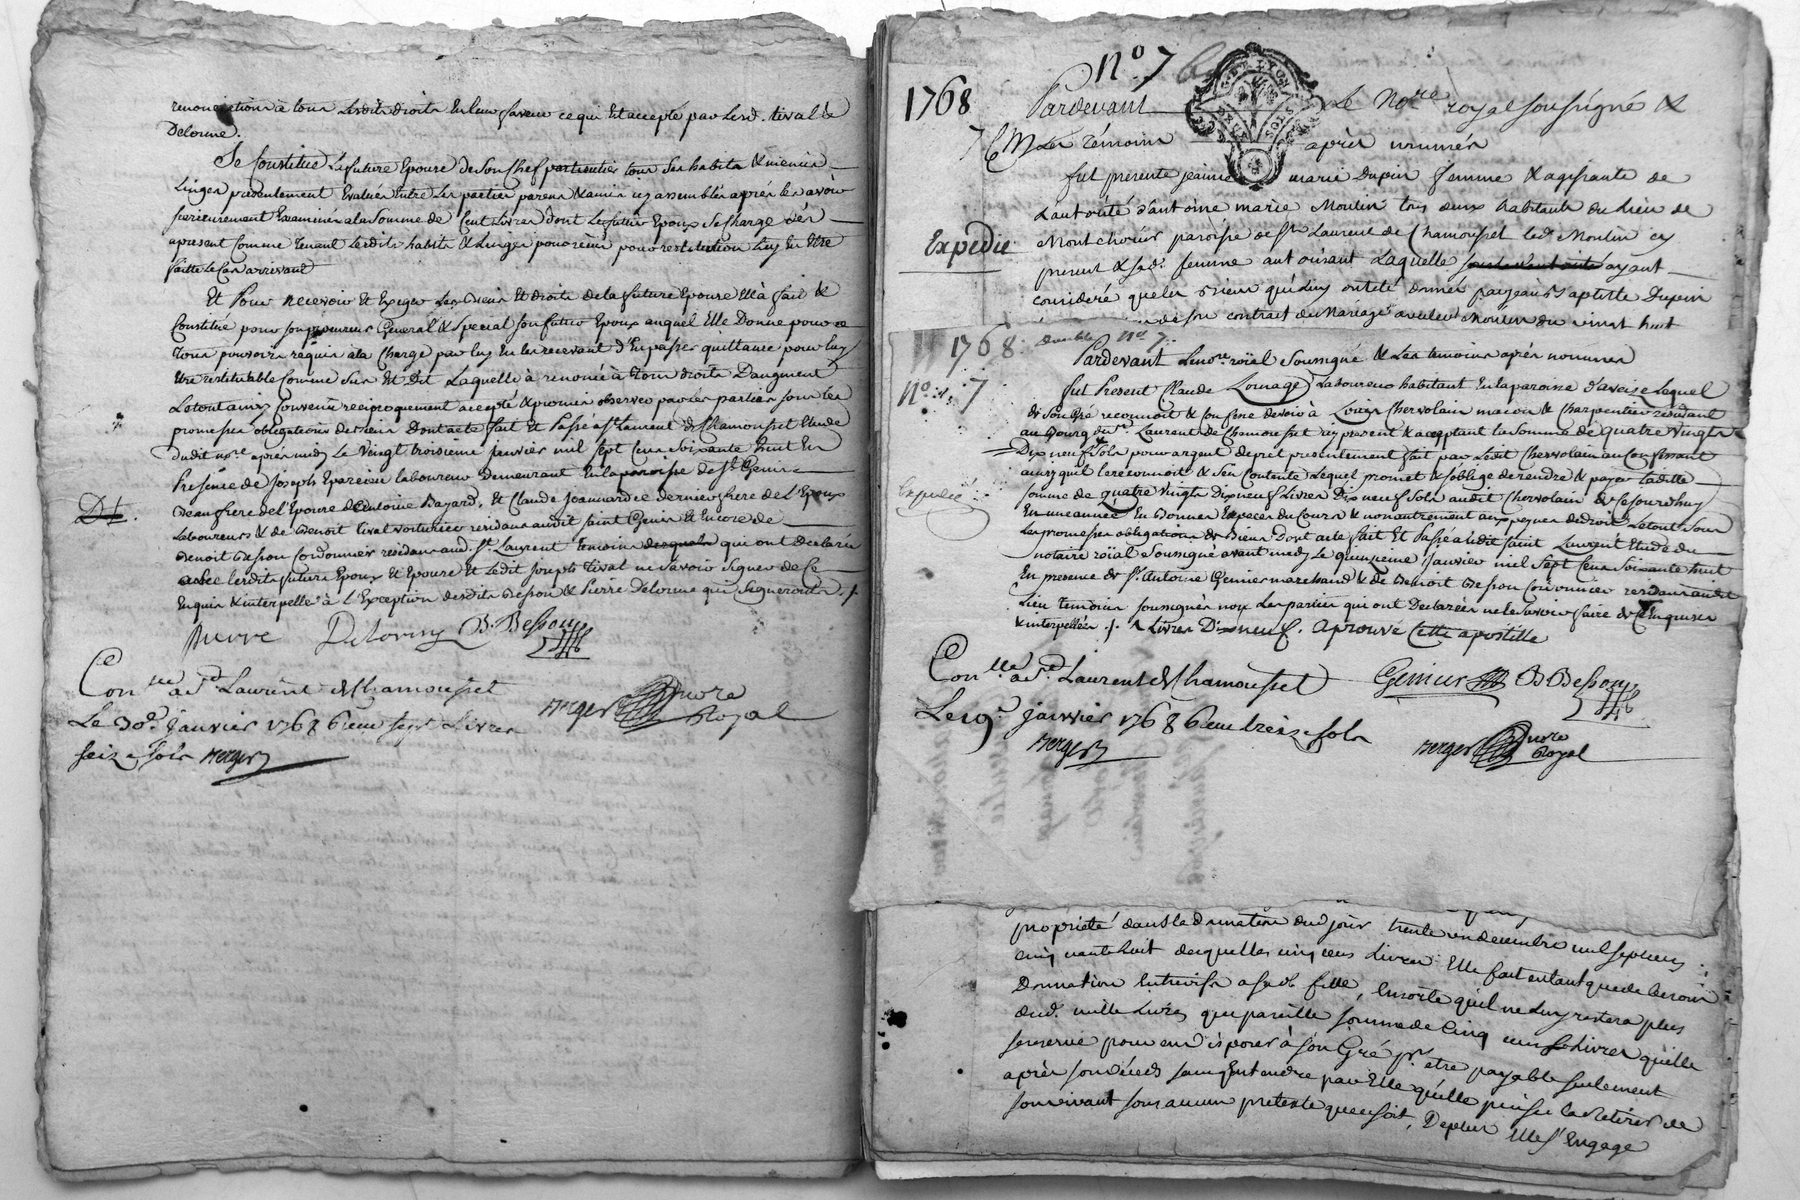 renonciation à tous lesdits droits en leur faveur ce qui est accepté par lesd. tival &
Delorme.
Se Constitue la future Epouse de son Chef particulier tous ses habits & menus
Linges présentement Evalués Entre les parties parens & amis icy assemblés après les avoir
serieusement Examinés a la Somme de Cent Livres dont le futur Epoux se charge dès
apresent Comme tenant lesdits habits & Linges pour restitution Luy en Etre
faitte le Cas arrivant
Et Pour recevoir Et Exiger les Biens Et droits de la future Epouse Ella fait &
Constitué pour son procureur General & Special son futur Epoux auquel Elle Donne pour ce
tous pouvoirs requis a la Charge par luy En les recevant d'En passer quittance pour luy
Etre restituable Comme sus Est Dit Laquelle à renoncé à tous droits Daugment
Le tout ainsy Convenu reciproquement accepté & promis observer par les parties sous les
promesses obligations de biens Dont acte fait Et Passé a St. Laurent de Chamousset Etude
dudit nore. après midy Le Vingt troisieme janvier mil sept Cens soixante huit En
Présence de joseph laboureur Demeurant En la paroisse de St. Genis
Beaufrere de l'Epouse d'antoine Bayard, & Claude joannard ce dernier frere de l'Epoux
Laboureurs & de Benoit tival voiturier residans audit saint Genis Et Encore de
Benoit Besson Cordonnier résidans aud. St. Laurent temoins desquels qui ont declarés
avec lesdits futurs Epoux Et Epouse Et Ledit joseph tival ne savoir signer de Ce
Enquis & interpellé à L'Exception desdits Besson & Pierre Delorme qui signeront ./.
Dt.
pierre Delorme B. Besson
Conlle a St. Laurent de Chamousset
Le 30e. janvier 1768 Reçu sept Livres
seize sols Berger
Berger Nore
Royal
no 7
1768
Pardevant Le Nore royal soussigné &
Les témoins après nommés
fut presente jeanne marie Dupin femme & agissante de
L'autorité d'antoine marie Moulin tous deux habitants du Lieu de
Montchorier paroisse de St. Laurent de Chamousset led. Moulin icy
present & sad. femme autorisant Laquelle ayant
consideré que les Biens qui luy ont été donnés par jean B aptiste Dupin
de son contrat de Mariage avec led. Moulin du vingt huit
Expédié
1768
double no 7.
no. 7
Pardevant Le nore. roïal Soussigné & Les temoins après nommés
fut Present Claude Lonnage Laboureur habitant En la paroisse d'aveise Lequel
de son Gré reconnoit & Confesse devoir à Louis Chervolain macon & Charpentier résidant
au Bourg du St. Laurent de Chamousset icy present & acceptant la Somme de quatre vingts
Dix neuf Sols pour argent de pret presentement fait par Ledit Chervolain au Confessant
ainsy qu'il le reconnoit & s'En Contente Lequel promet & s'oblige de rendre & payer Ladite
somme de quatre vingts Dix neuf Livres Dix neuf Sols audit Chervolain de Cejourd'huy
En une année En Bonnes Especes du Cours & non autrement aux peynes de droit Le tout sous
Les promesses obligations de Biens Dont acte fait Et Passé a ledit saint Laurent Etude du
notaire roïal soussigné avant midy Le quinzieme janvier mil Sept Cens Soixante huit
En presence de Sr. Antoine Genier marchand & de Benoit Besson Cordonnier residans audit
Lieu temoins soussignés non Les parties qui ont Declarées ne le savoir faire de ce Enquises
& interpellées ./. Livres Dix neuf. Aprouvé Cette apostille
Expedié
Conlle. a St. Laurent de Chamousset
Le 19e. janvier 1768 Reçu treize sols
Berger
Genier B Besson
Berger Nore
Royal
proprieté dans la donation dud jour trente un decembre mil sept cens
cinquante huit desquelles cinq cens Livres Elle fait entant que de besoin
Donnation Entrevifs a sad. fille, Ensorte qu'il ne luy restera plus
dud. mille Livres que pareille somme de Cinq cens Livres qu'elle
se reserve pour en disposer à son Gré pr. etre payable seulement
après son décés sans Entendre par Elle qu'elle puisse la Retirer de
son vivant sous aucun pretexte que ce soit, De plus Elle s'Engage